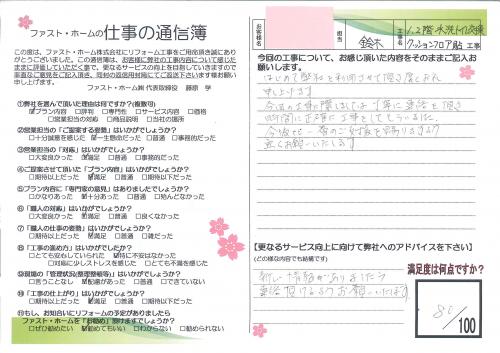 ファスト・ホームの仕事の通信簿
この度は、ファスト・ホーム株式会社にリフォーム工事をご用命頂き誠にあり
がとうございました。この通信簿は、お客様に弊社の工事内容について感じた
ままに評価していただく事で、更なるサービスの向上を目指していきますので
率直なご意見をご記入頂き、同封の返信用封筒にてご返送下さいます様お願い
申し上げます。
ファスト・ホーム㈱ 代表取締役 藤原 学
①弊社を選んで頂いた理由は何ですか?(複数可)
□プラン内容 □評判 □専門店 □サービス内容 □価格
□営業担当の対応 □商品説明 □当社の場所
②営業担当の「ご提案する姿勢」はいかがでしょうか?
□十分誠意を感じた □一生懸命だった □普通 □事務的だった
③営業担当の「対応」はいかがでしょうか?
□大変良かった □満足 □普通 □事務的だった
④ご提案させて頂いた「プラン内容」はいかがでしょうか?
□期待以上だった □満足 □普通 □期待以下だった
⑤プラン内容に「専門家の意見」はありましたでしょうか?
□かなりあった □十分あった □普通 □殆んどなかった
⑥「職人の対応」はいかがでしょうか?
□大変良かった □満足 □普通 □良くなかった
⑦「職人の仕事の姿勢」はいかがでしょうか?
□期待以上だった □満足 □普通 □雑だった
⑧「工事の進め方」はいかがでしたか?
□とても安心していられた □特に不安はなかった
□対応に少しストレスを感じた □とても不満を感じた
⑨現場の「管理状況(整理整頓等)」はいかがでしょうか?
□言うことなし □配慮があった □普通 □できていない
⑩「工事の仕上がり」はいかがでしょうか?
□期待以上だった □満足 □普通 □期待以下
⑪もし、お知合いにリフォームの予定がありましたら
ファスト・ホームを「お勧め」頂けますでしょうか?
□ぜひ勧めたい □勧めてもいい □わからない □勧められない
お客様名
担当
鈴木
工事名
1、2階水洗トイレ交換
クッションフロア貼 工事
今回の工事について、お感じ頂いた内容をそのままご記入お
願いします。
はじめて弊社を利用させて頂き
申し上げます
お願いいたします
【更なるサービス向上に向けて弊社へのアドバイスを下さい】
(どの様な内容でも結構です)
新しい情報がありましたら
連絡頂けるようお願いいたします
満足度は何点ですか?
80/100